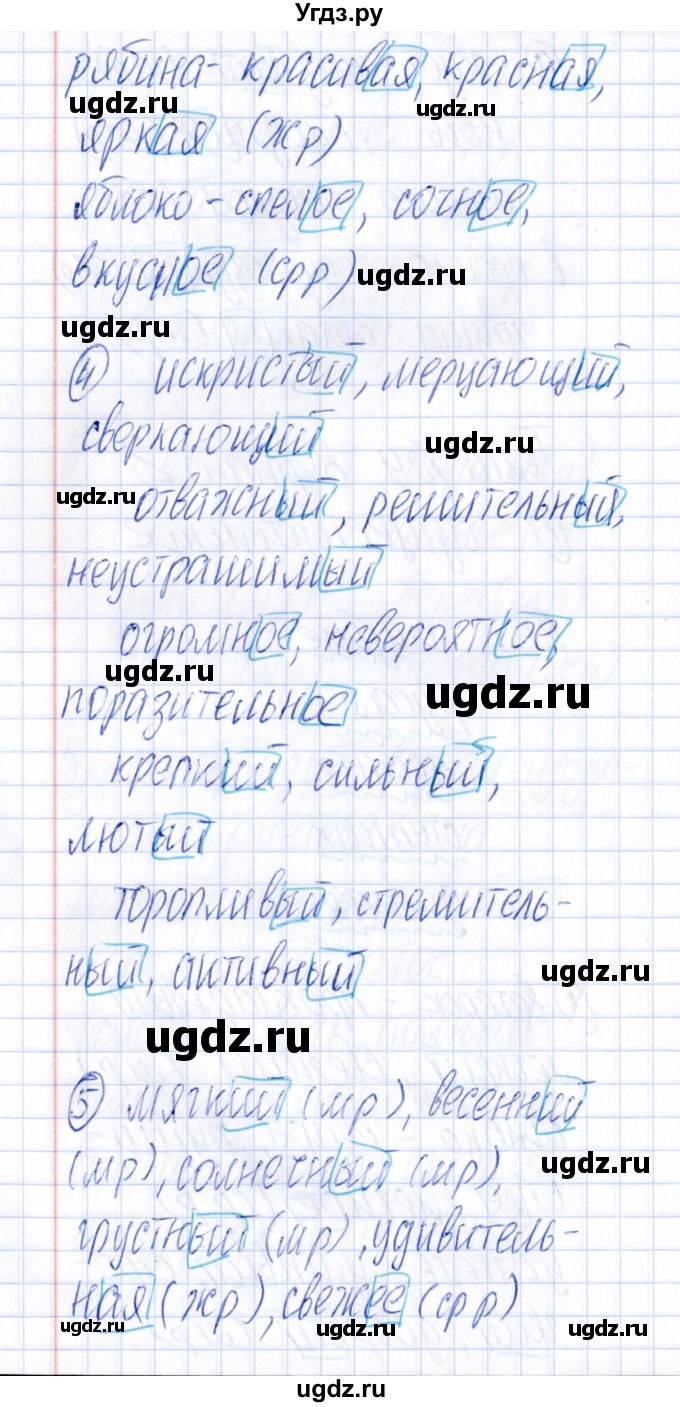 Угдз.ру
рябина - красивая, красная,
ugdz.ru ugdz.ru
яркая (жр)
яблоко - спелое, сочное,
вкусное (срр) ugdz.ru
ugdz.ru
4 искристый, мерцающий,
сверкающий ugdz.ru
ugdz.ru
отважный, решительный,
неустрашимый
огромное, невероятное,
ugdz.ru ugdz.ru
поразительное
крепкий, сильный,
лютый
торопливый, стремитель-
ный, активный ugdz.ru
ugdz.ru
5 мягкий (мр), весенний
(мр), солнечный (мр), ugdz.ru
грустный (мр), удивитель-
ная (жр), свежее (срр)
ugdz.ru ugdz.ru ugdz.ru
ugdz.ru